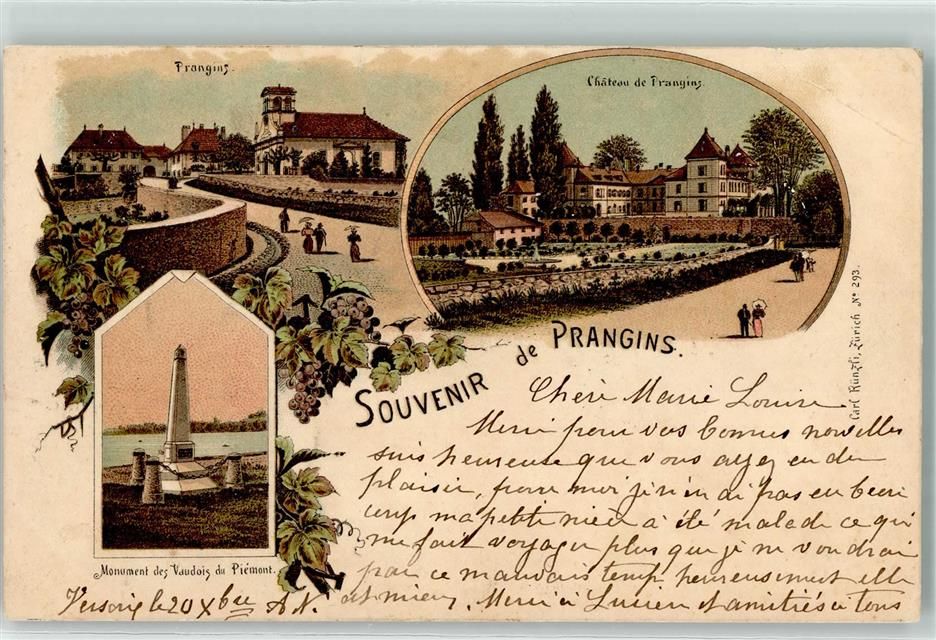 Prangins.
Château de Prangins.
Carl Künzli, Zürich No 293.
SOUVENIR de PRANGINS.
Monument des Vaudois du Piémont.
Chère Marie Louise
Merci pour vos bonnes nouvelles
suis heureuse que vous ayez eu du
plaisir, pour moi je n'en ai pas eu beau
coup ma petite nièce a été malade ce qui
me fait voyager plus que je ne voudrai
par ce mauvais temps heureusement elle
est mieux. Merci à Lucien et amitiés à tous
le 20 Xbre A.N.